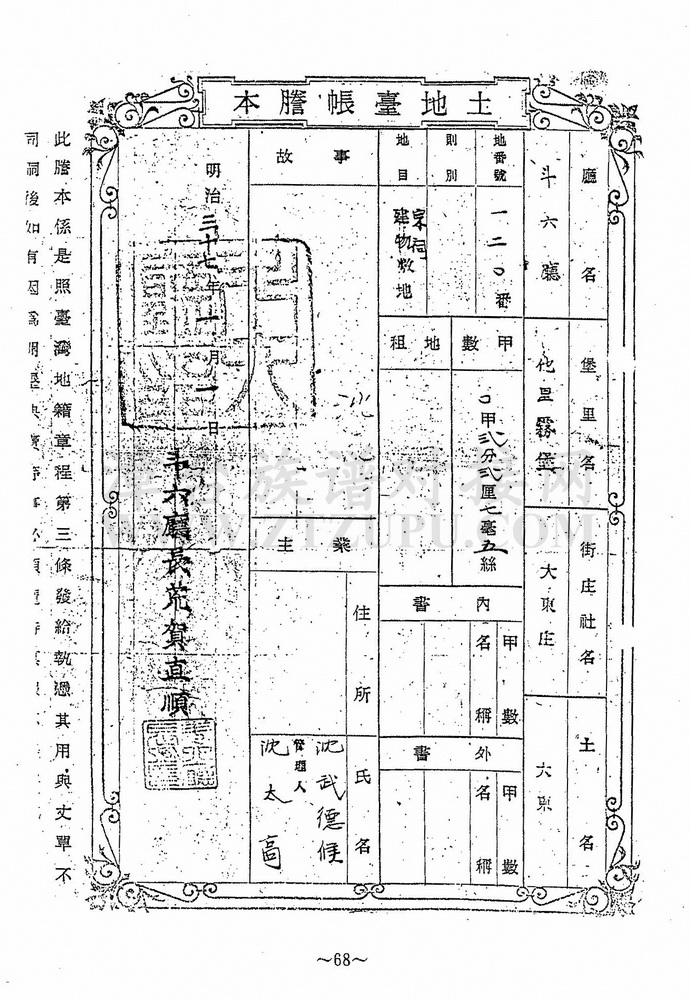 土地臺帳謄本
廳名
斗六廳
堡里名
他里霧堡
街庄社名
大東庄
土名
大東
地番號
一二〇番
則別
地目
宗祠
建物敷地
甲數
地租
〇甲弐分弐厘七毫五絲
內書
甲數
名稱
外書
甲數
名稱
事故
業主
住所
氏名
沈武德
管理人
沈太高
明治三十七年十一月一日
斗六廳長荒賀直順
此謄本係是照臺灣地籍章程第三條發給執憑其用與丈單不
同嗣後如有因
~68~
津台族谱对接网
WWW.ZTZUPU.COM